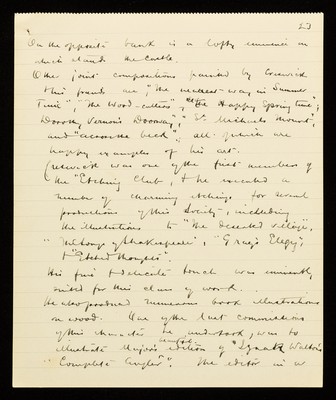 23
On the opposite bank is a lofty eminence on
which stands the Castle.
Other joint compositions painted by Creswick
this friends are, "The nearest way in Summer
Time", "The Wood-cutters", "The Happy Spring time";
Dorothy Vernon's Doorway", "St. Michaels Mount",
and "across the beck", all of which are
happy examples of his art.
Creswick was one of the first members of
the "Etching Club", & he executed a
number of charming etchings for several
productions of this Society, including
the illustrations to "The Deserted village",
"The Songs of Shakespeare", "Gray's Elegy",
& "Etched Thoughts".
His fine & delicate touch was eminently
suited for this class of work.
He also produced numerous book illustrations
on wood. One of the last commissions
of this character he undertook, was to
illustrate Major's beautiful edition of "Izaak Walton's
"Complete Angler". The editor in a